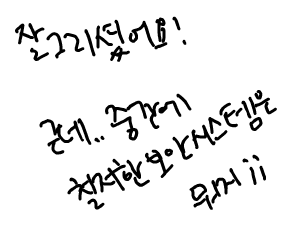 잘그리셨어요!
근데.. 중간에
철저한보안시스템은
뭐여;;